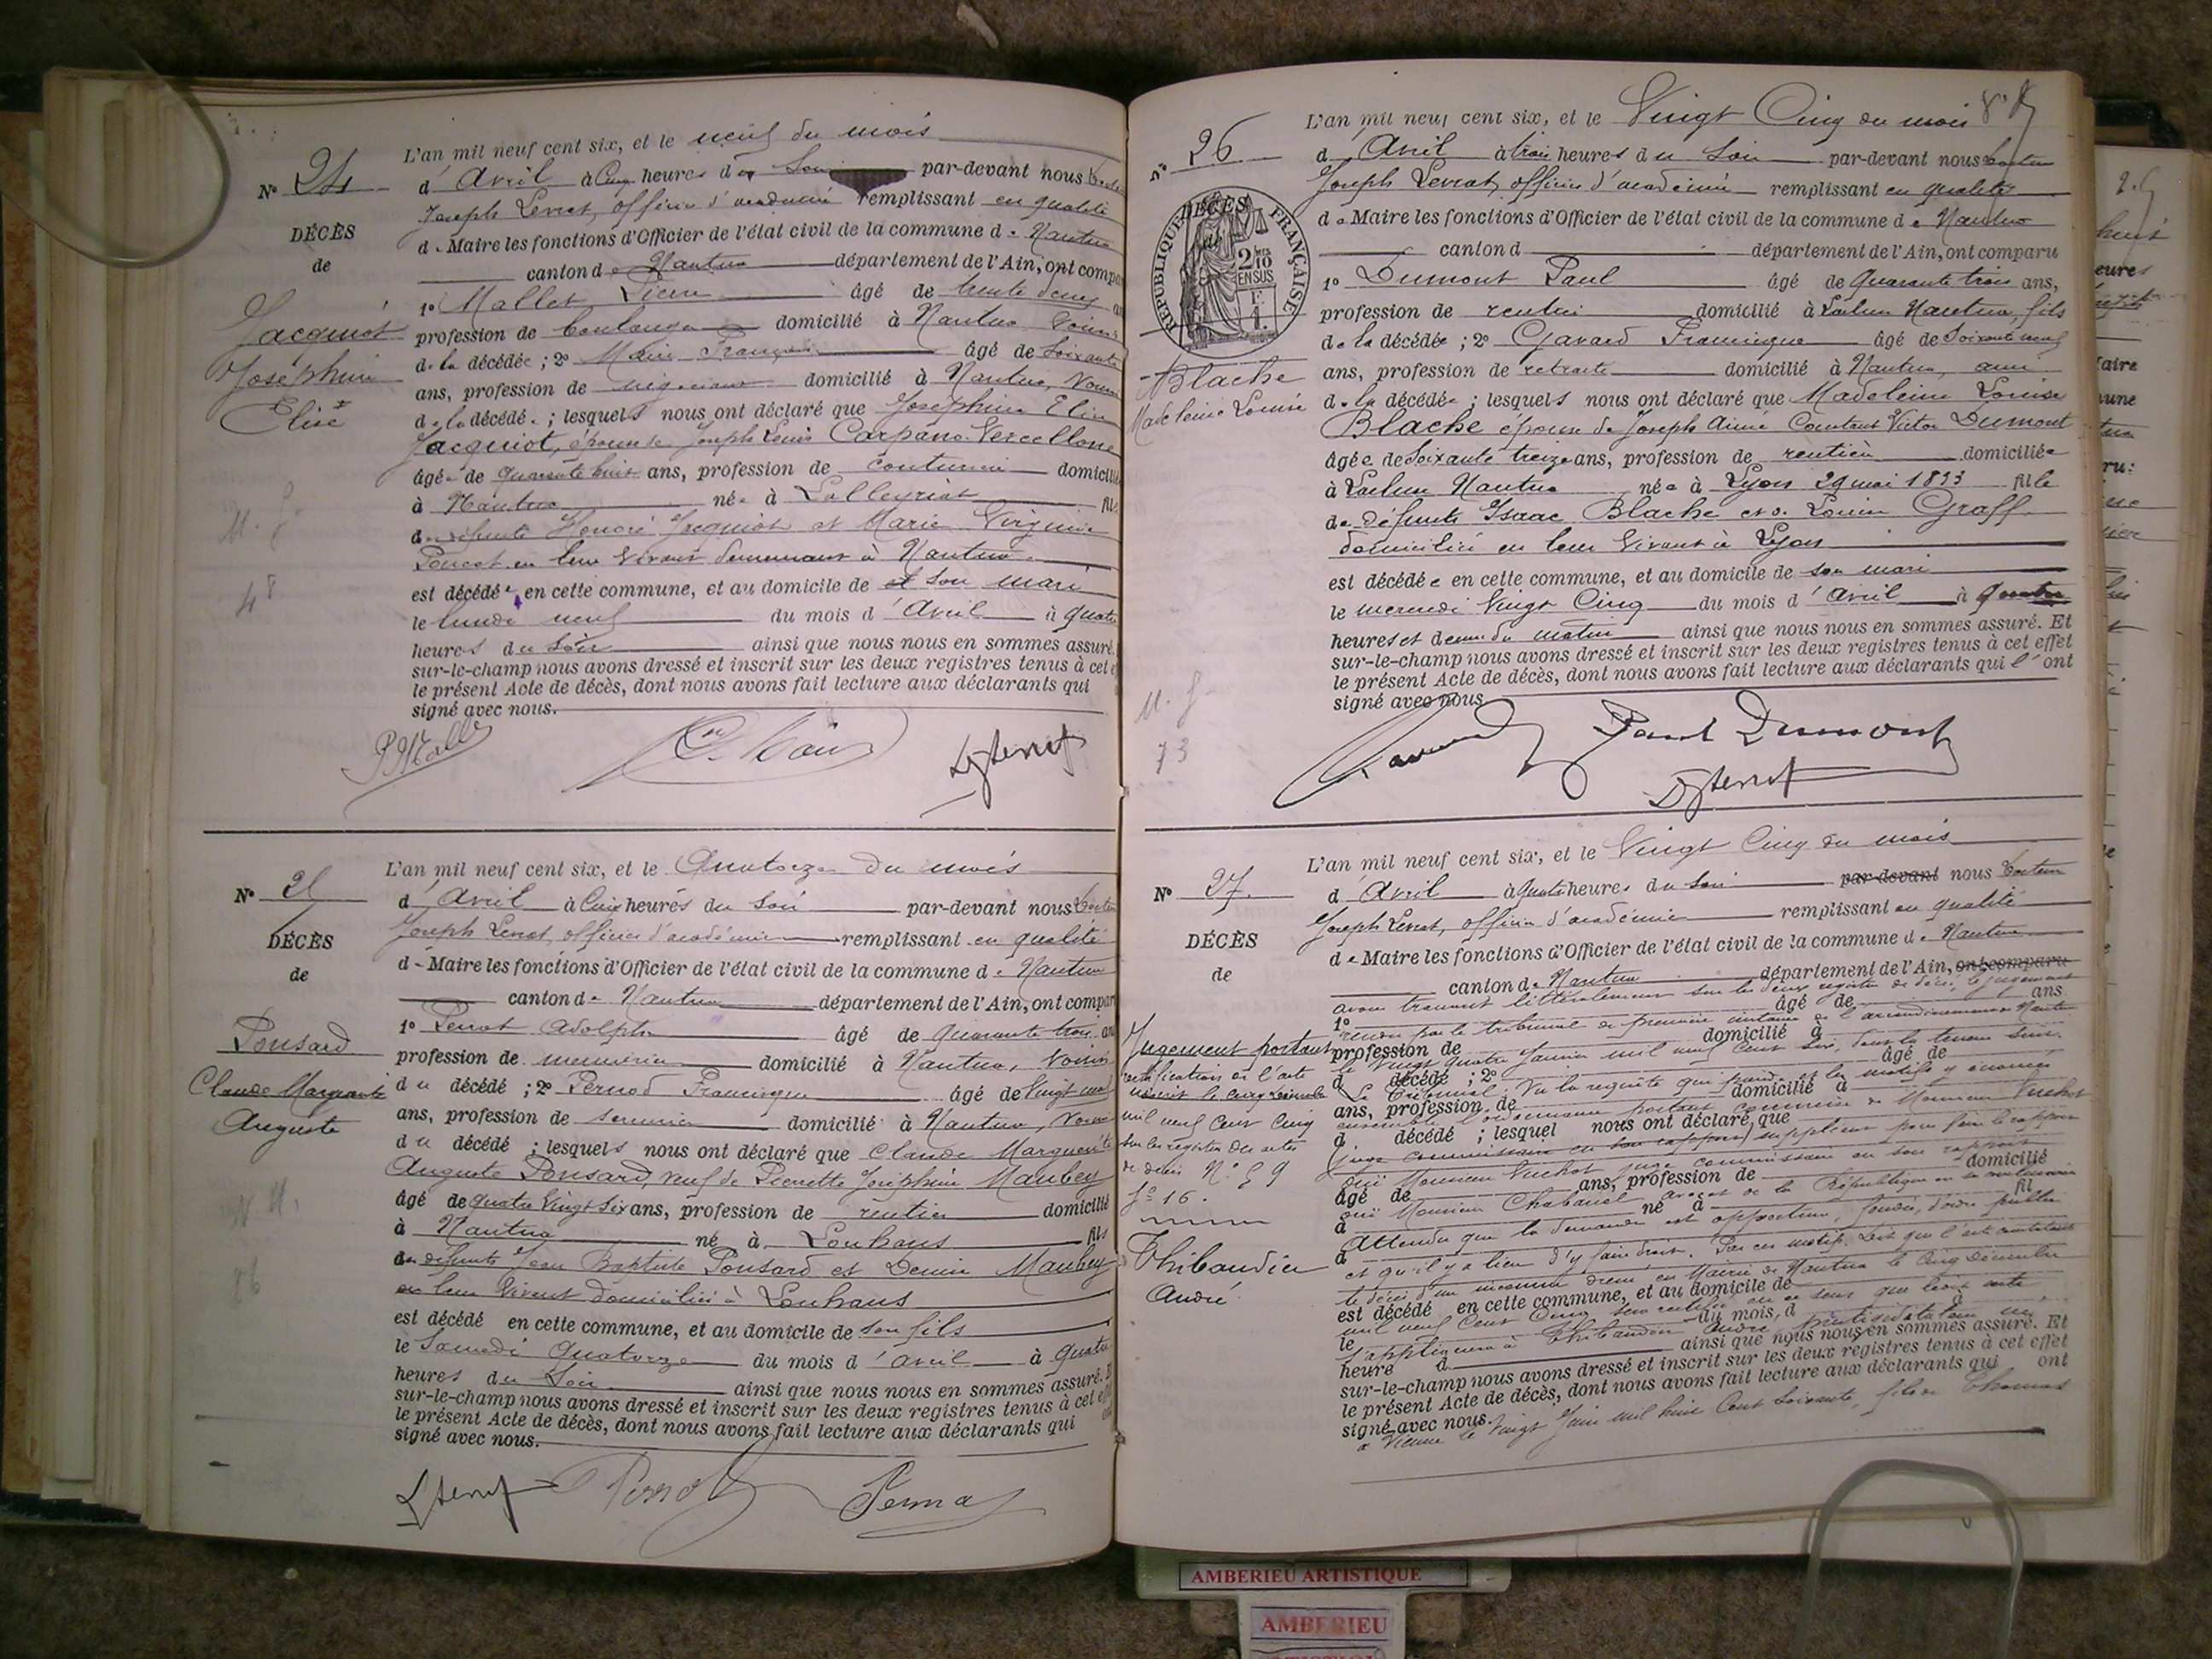 L'an mil neuf cent six, et le neuf du mois
N° 24
d'Avril à Cinq heures du Soir par-devant nous
Joseph Levrat, officier d'académie remplissant en qualité
DÉCÈS
de Maire les fonctions d'Officier de l'état civil de la commune de Nantua
de
canton de Nantua département de l'Ain, ont compa
1° Mallet Pierre âgé de trente deux
Jacquiot
Joséphine
Elise
profession de boulanger domicilié à Nantua voisin
de la décédée ; 2° François âgé de Soixante
ans, profession de négociant domicilié à Nantua, Voisin
de la décédée ; lesquels nous ont déclaré que Joséphine Elise
Jacquiot, épouse de Joseph Louis Carpano Vercellone
âgée de quarante huit ans, profession de couturière domicilié
à Nantua née à Lalleyriat fil
de défunts Honoré Jacquiot et Marie Virginie
Poncet en leur vivant demeurant à Nantua
est décédée en cette commune, et au domicile de son mari
48
le lundi neuf du mois d'Avril à quatre
heures du Soir ainsi que nous nous en sommes assuré.
sur-le-champ nous avons dressé et inscrit sur les deux registres tenus à cet e
le présent Acte de décès, dont nous avons fait lecture aux déclarants qui
signé avec nous.
L'an mil neuf cent six, et le Quatorze du mois
N° 25
d'Avril à Cinq heures du Soir par-devant nous
Joseph Levrat, officier d'académie remplissant en qualité
DÉCÈS
de Maire les fonctions d'Officier de l'état civil de la commune de Nantua
de
canton de Nantua département de l'Ain, ont compar
1° Perrot Adolphe âgé de quarante trois an
Ponsard
Claude Marguerite
Auguste
profession de menuisier domicilié à Nantua, Voisin
du décédé ; 2° Pernod Francisque âgé de Vingt neuf
ans, profession de serrurier domicilié à Nantua, Voisin
du décédé ; lesquels nous ont déclaré que Claude Marguerite
Auguste Ponsard, veuf de Pierrette Joséphine Maubey
âgé de quatre Vingt Six ans, profession de rentier domicilié
à Nantua né à Louhans fils
de défunts Jean Baptiste Ponsard et Denise Maubey
en leur Vivant domiciliés à Louhans
est décédé en cette commune, et au domicile de son fils
le Samedi Quatorze du mois d'avril à Quatre
heures du Soir ainsi que nous nous en sommes assuré. E
sur-le-champ nous avons dressé et inscrit sur les deux registres tenus à cet e
le présent Acte de décès, dont nous avons fait lecture aux déclarants qui
signé avec nous.
L'an mil neuf cent six, et le Vingt Cinq du mois
N° 26
d'Avril à trois heures du Soir par-devant nous
Joseph Levrat, officier d'académie remplissant en qualité
RÉPUBLIQUE FRANÇAISE
DÉCÈS
de
2 10 EN SUS
de Maire les fonctions d'Officier de l'état civil de la commune de Nantua
canton d département de l'Ain, ont comparu
1° Dumont Paul âgé de Quarante trois ans,
profession de rentier domicilié à Nantua, fils
de la décédée ; 2° Gavard Francisque âgé de Soixante neuf
Blache
Madeleine Louise
ans, profession de retraité domicilié à Nantua, ami
de la décédée ; lesquels nous ont déclaré que Madeleine Louise
Blache épouse de Joseph Aimé Constant Victor Dumont
âgée de Soixante treize ans, profession de rentière domiciliée
à Nantua née à Lyon 29 mai 1833 fille
de défunts Isaac Blache et Louise Graff
domiciliés en leur Vivant à Lyon
est décédée en cette commune, et au domicile de son mari
le mercredi Vingt Cinq du mois d'avril à quatre
heures et demie du matin ainsi que nous nous en sommes assuré. Et
sur-le-champ nous avons dressé et inscrit sur les deux registres tenus à cet effet
le présent Acte de décès, dont nous avons fait lecture aux déclarants qui l'ont
signé avec nous.
73
Paul Dumont
L'an mil neuf cent six, et le Vingt Cinq du mois
N° 27.
d'Avril à quatre heures du Soir par-devant nous
Joseph Levrat, officier d'académie remplissant en qualité
DÉCÈS
de Maire les fonctions d'Officier de l'état civil de la commune de Nantua
de
canton de Nantua département de l'Ain, ont comparu
avons transcrit littéralement sur les deux registres de décès, le jugement
1° âgé de ans
rendu par le tribunal de première instance de l'arrondissement de Nantua
profession de domicilié à
le Vingt quatre Janvier mil neuf Cent Six, dont la teneur suit.
d décédé ; 2° âgé de
Le Tribunal, Vu la requête qui précède et les motifs y énoncés
ans, profession de domicilié à
ensemble l'ordonnance portant commission de Monsieur Vuchot
d décédé ; lesquel nous ont déclaré que
Jugement portant
rectification de l'acte
inscrit le cinq Décembre
mil neuf Cent Cinq
sur les registres des actes
de décès N° 59
f° 16.
Thibaudier
André
juge commissaire
ouï Monsieur Vuchot juge commissaire en son rapport
âgé de ans, profession de domicilié
ouï Monsieur Chabanel de la République
à né à fil
Attendu que la demande est opportune, fondée, d'ordre public
d
et qu'il y a lieu d'y faire droit. Par ces motifs. Dit que l'acte constatant
le décès d'un inconnu dressé en Mairie de Nantua le Cinq Décembre
est décédé en cette commune, et au domicile de
mil neuf Cent Cinq sera rectifié en ce sens que ledit acte
le du mois d à
s'appliquera à Thibaudier André
heure d ainsi que nous nous en sommes assuré. Et
sur-le-champ nous avons dressé et inscrit sur les deux registres tenus à cet effet
le présent Acte de décès, dont nous avons fait lecture aux déclarants qui ont
signé avec nous.
à Vienne le Vingt Juin mil huit Cent Soixante, fils de Thomas
AMBERIEU ARTISTIQUE
AMBERIEU